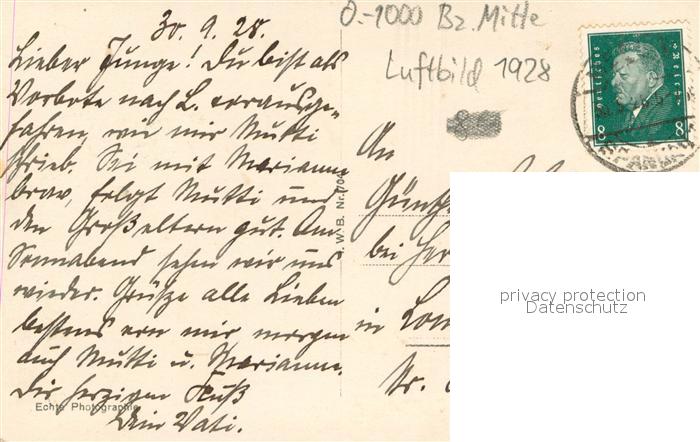 30.9.28.
Lieber Junge! Du bist als
Vorbote nach L. vorausge-
fahren, wie mir Mutti
schrieb. Sei mit Marianne
brav, folgt Mutti und
den Großeltern gut. Am
Sonnabend sehen wir uns
wieder. Grüsze alle Lieben
bestens von mir morgen
auch Mutti u. Marianne.
Dir herzigen Kuß
Dein Vati.
Echte Photographie
W. B. Nr. 704
O.-1000 Bz. Mitte
Luftbild 1928
Deutsches Reich
8 8
An
Günth
bei Her
in Lom
Nr.
privacy protection
Datenschutz